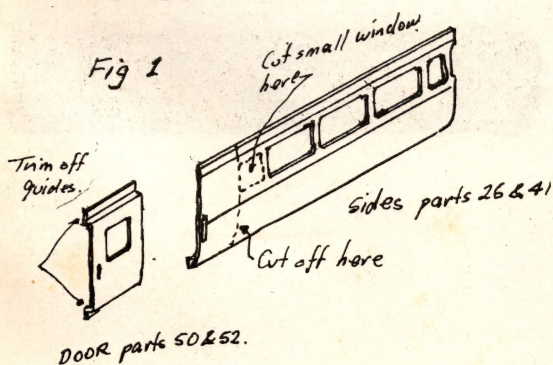 Fig 1
Cut small window
here
Trim off
guides.
sides parts 26 & 41
Cut off here
DOOR parts 50 & 52.